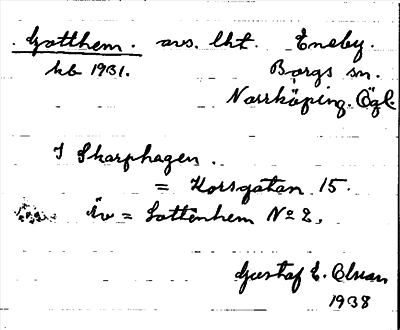 Gotthem. avs. lht. Eneby.
kb 1931. Borgs sn.
Norrköping. Ögl.
I Skarphagen.
= Korsgatan 15.
äv = Lottenhem No 2.
Gustaf E. Olsson
1938